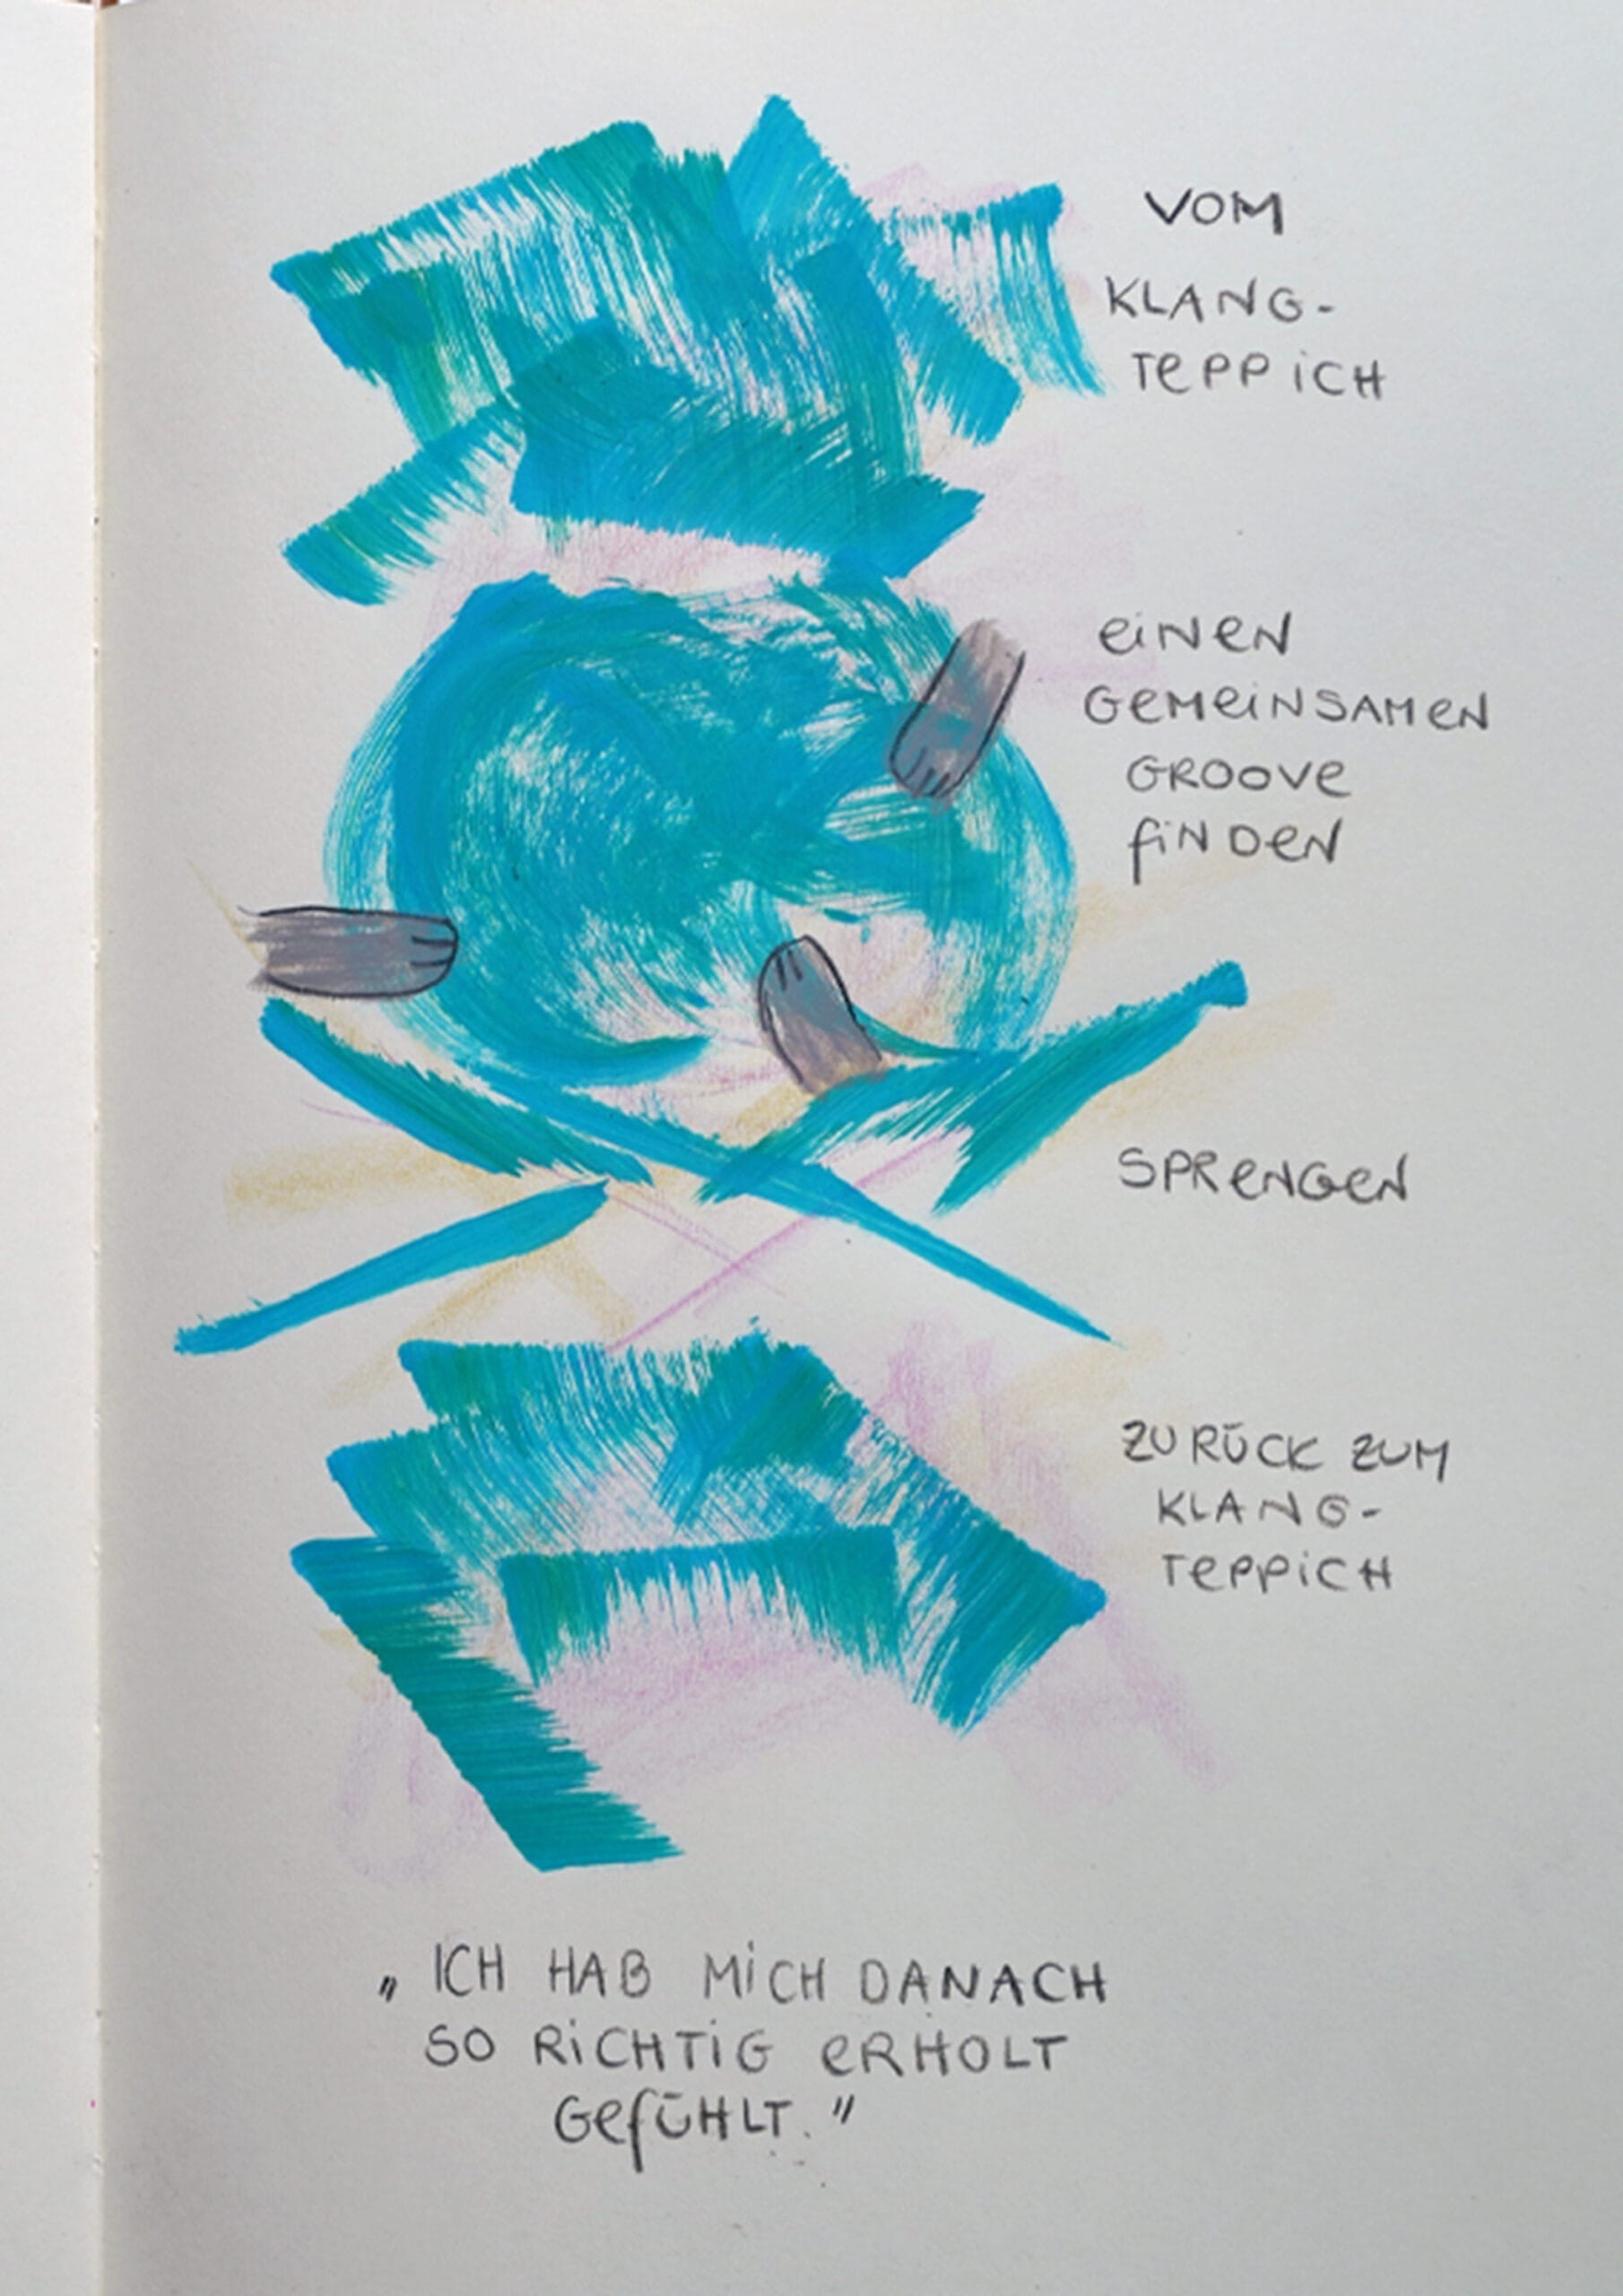 VOM
KLANG-
TEPPICH
EINEN
GEMEINSAMEN
GROOVE
FINDEN
SPRENGEN
ZURÜCK ZUM
KLANG-
TEPPICH
„ICH HAB MICH DANACH
SO RICHTIG ERHOLT
GEFÜHLT."